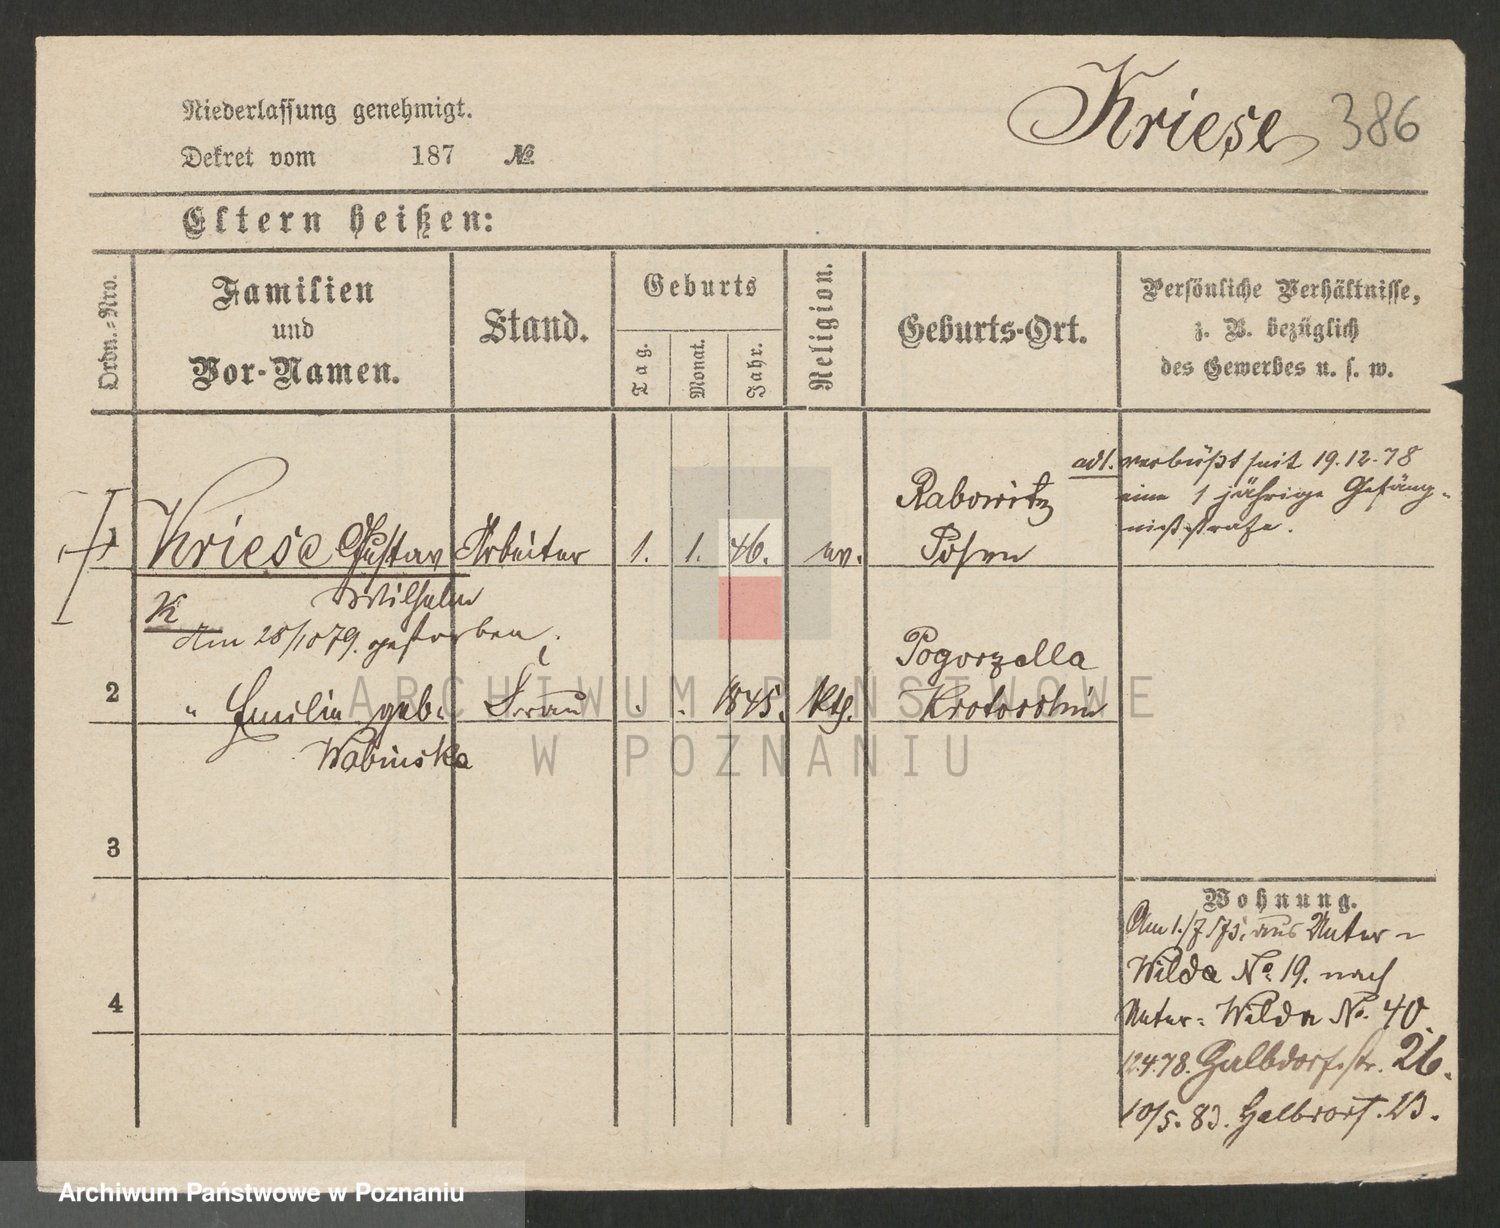 Kriese 386
Niederlassung genehmigt.
Dekret vom 187 №
Eltern heißen:
Ordn.-Nro.
Familien
und
Vor-Namen.
Stand.
Geburts
Tag.
Monat.
Jahr.
Religion.
Geburts-Ort.
Persönliche Verhältnisse,
z. B. bezüglich
des Gewerbes u. s. w.
adl. verbüßt seit 19.12.78
eine 1 jährige Gefäng-
nißstrafe.
Rabowitz
1 Kriese Gustav Arbeiter 1. 1. 46. ev. Posen
Wilhelm
K
Am 28/10 79. gestorben.
Pogorzella
2 " Emilie geb. Frau . . 1845. kth. Krotoschin
Wabinska
3
4
Wohnung.
Am 1./7 75. aus Unter-
Wilda No. 19. nach
Unter-Wilda No. 40.
12.4.78. Halbdorfstr. 26.
10/5. 83. Halbdorf. 23.
ARCHIWUM PAŃSTWOWE
W POZNANIU
Archiwum Państwowe w Poznaniu